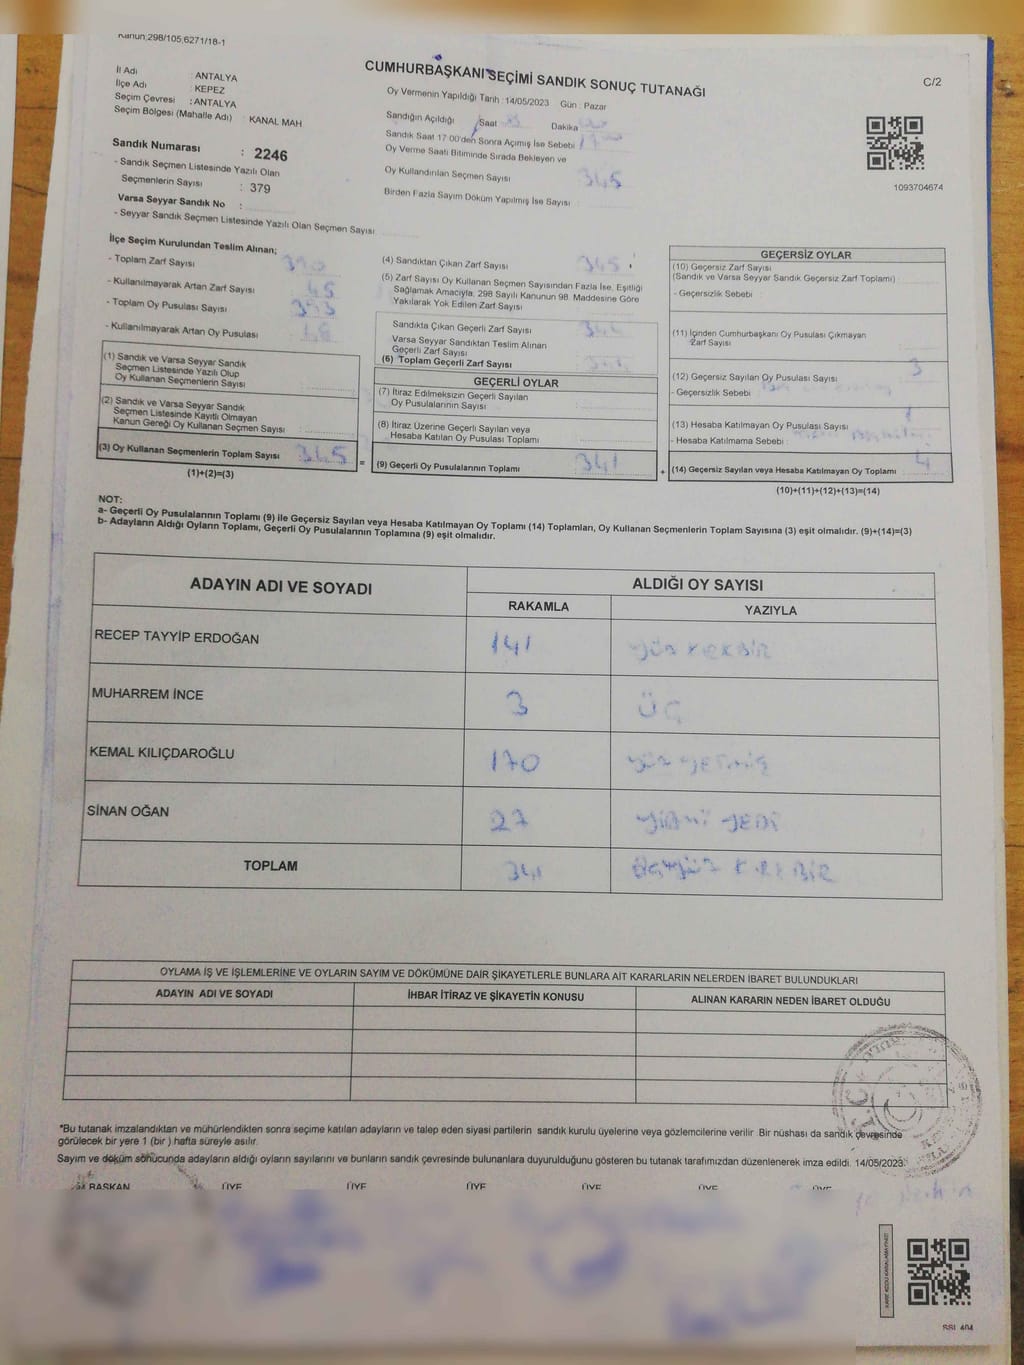 Kanun;298/105;6271/18-1
CUMHURBAŞKANI SEÇİMİ SANDIK SONUÇ TUTANAĞI
C/2
İl Adı : ANTALYA
İlçe Adı : KEPEZ
Seçim Çevresi : ANTALYA
Seçim Bölgesi (Mahalle Adı) : KANAL MAH
Oy Vermenin Yapıldığı Tarih :14/05/2023 Gün : Pazar
Sandığın Açıldığı Saat Dakika
Sandık Saat 17 00'den Sonra Açımış İse Sebebi
Oy Verme Saati Bitiminde Sırada Bekleyen ve
Oy Kullandırılan Seçmen Sayısı 345
Birden Fazla Sayım Döküm Yapılmış İse Sayısı :
1093704674
Sandık Numarası : 2246
- Sandık Seçmen Listesinde Yazılı Olan
Seçmenlerin Sayısı : 379
Varsa Seyyar Sandık No :
- Seyyar Sandık Seçmen Listesinde Yazılı Olan Seçmen Sayısı
İlçe Seçim Kurulundan Teslim Alınan;
- Toplam Zarf Sayısı 390
- Kullanılmayarak Artan Zarf Sayısı 45
- Toplam Oy Pusulası Sayısı 393
- Kullanılmayarak Artan Oy Pusulası 48
(1) Sandık ve Varsa Seyyar Sandık
Seçmen Listesinde Yazılı Olup
Oy Kullanan Seçmenlerin Sayısı :
(2) Sandık ve Varsa Seyyar Sandık
Seçmen Listesinde Kayıtlı Olmayan
Kanun Gereği Oy Kullanan Seçmen Sayısı :
(3) Oy Kullanan Seçmenlerin Toplam Sayısı 345
(1)+(2)=(3)
=
(4) Sandıktan Çıkan Zarf Sayısı 345
(5) Zarf Sayısı Oy Kullanan Seçmen Sayısından Fazla İse, Eşitliği
Sağlamak Amacıyla, 298 Sayılı Kanunun 98. Maddesine Göre
Yakılarak Yok Edilen Zarf Sayısı
Sandıkta Çıkan Geçerli Zarf Sayısı
Varsa Seyyar Sandıktan Teslim Alınan
Geçerli Zarf Sayısı
(6) Toplam Geçerli Zarf Sayısı
GEÇERLİ OYLAR
(7) İtiraz Edilmeksizin Geçerli Sayılan
Oy Pusulalarının Sayısı
(8) İtiraz Üzerine Geçerli Sayılan veya
Hesaba Katılan Oy Pusulası Toplamı
(9) Geçerli Oy Pusulalarının Toplamı 341
+
GEÇERSİZ OYLAR
(10) Geçersiz Zarf Sayısı
(Sandık ve Varsa Seyyar Sandık Geçersiz Zarf Toplamı)
- Geçersizlik Sebebi
(11) İçinden Cumhurbaşkanı Oy Pusulası Çıkmayan
Zarf Sayısı
(12) Geçersiz Sayılan Oy Pusulası Sayısı 3
- Geçersizlik Sebebi
(13) Hesaba Katılmayan Oy Pusulası Sayısı 1
- Hesaba Katılmama Sebebi
(14) Geçersiz Sayılan veya Hesaba Katılmayan Oy Toplamı 4
(10)+(11)+(12)+(13)=(14)
NOT:
a- Geçerli Oy Pusulalarının Toplamı (9) ile Geçersiz Sayılan veya Hesaba Katılmayan Oy Toplamı (14) Toplamları, Oy Kullanan Seçmenlerin Toplam Sayısına (3) eşit olmalıdır. (9)+(14)=(3)
b- Adayların Aldığı Oyların Toplamı, Geçerli Oy Pusulalarının Toplamına (9) eşit olmalıdır.
ADAYIN ADI VE SOYADI ALDIĞI OY SAYISI
RAKAMLA YAZIYLA
RECEP TAYYİP ERDOĞAN 141 YÜZ KIRKBİR
MUHARREM İNCE 3 ÜÇ
KEMAL KILIÇDAROĞLU 170 YÜZ YETMİŞ
SİNAN OĞAN 27 YİRMİ YEDİ
TOPLAM 341 ÜÇYÜZ KIRK BİR
OYLAMA İŞ VE İŞLEMLERİNE VE OYLARIN SAYIM VE DÖKÜMÜNE DAİR ŞİKAYETLERLE BUNLARA AİT KARARLARIN NELERDEN İBARET BULUNDUKLARI
ADAYIN ADI VE SOYADI İHBAR İTİRAZ VE ŞİKAYETİN KONUSU ALINAN KARARIN NEDEN İBARET OLDUĞU
*Bu tutanak imzalandıktan ve mühürlendikten sonra seçime katılan adayların ve talep eden siyasi partilerin sandık kurulu üyelerine veya gözlemcilerine verilir .Bir nüshası da sandık çevresinde
görülecek bir yere 1 (bir ) hafta süreyle asılır.
Sayım ve döküm sonucunda adayların aldığı oyların sayılarını ve bunların sandık çevresinde bulunanlara duyurulduğunu gösteren bu tutanak tarafımızdan düzenlenerek imza edildi. 14/05/2023
BAŞKAN ÜYE ÜYE ÜYE ÜYE ÜYE ÜYE